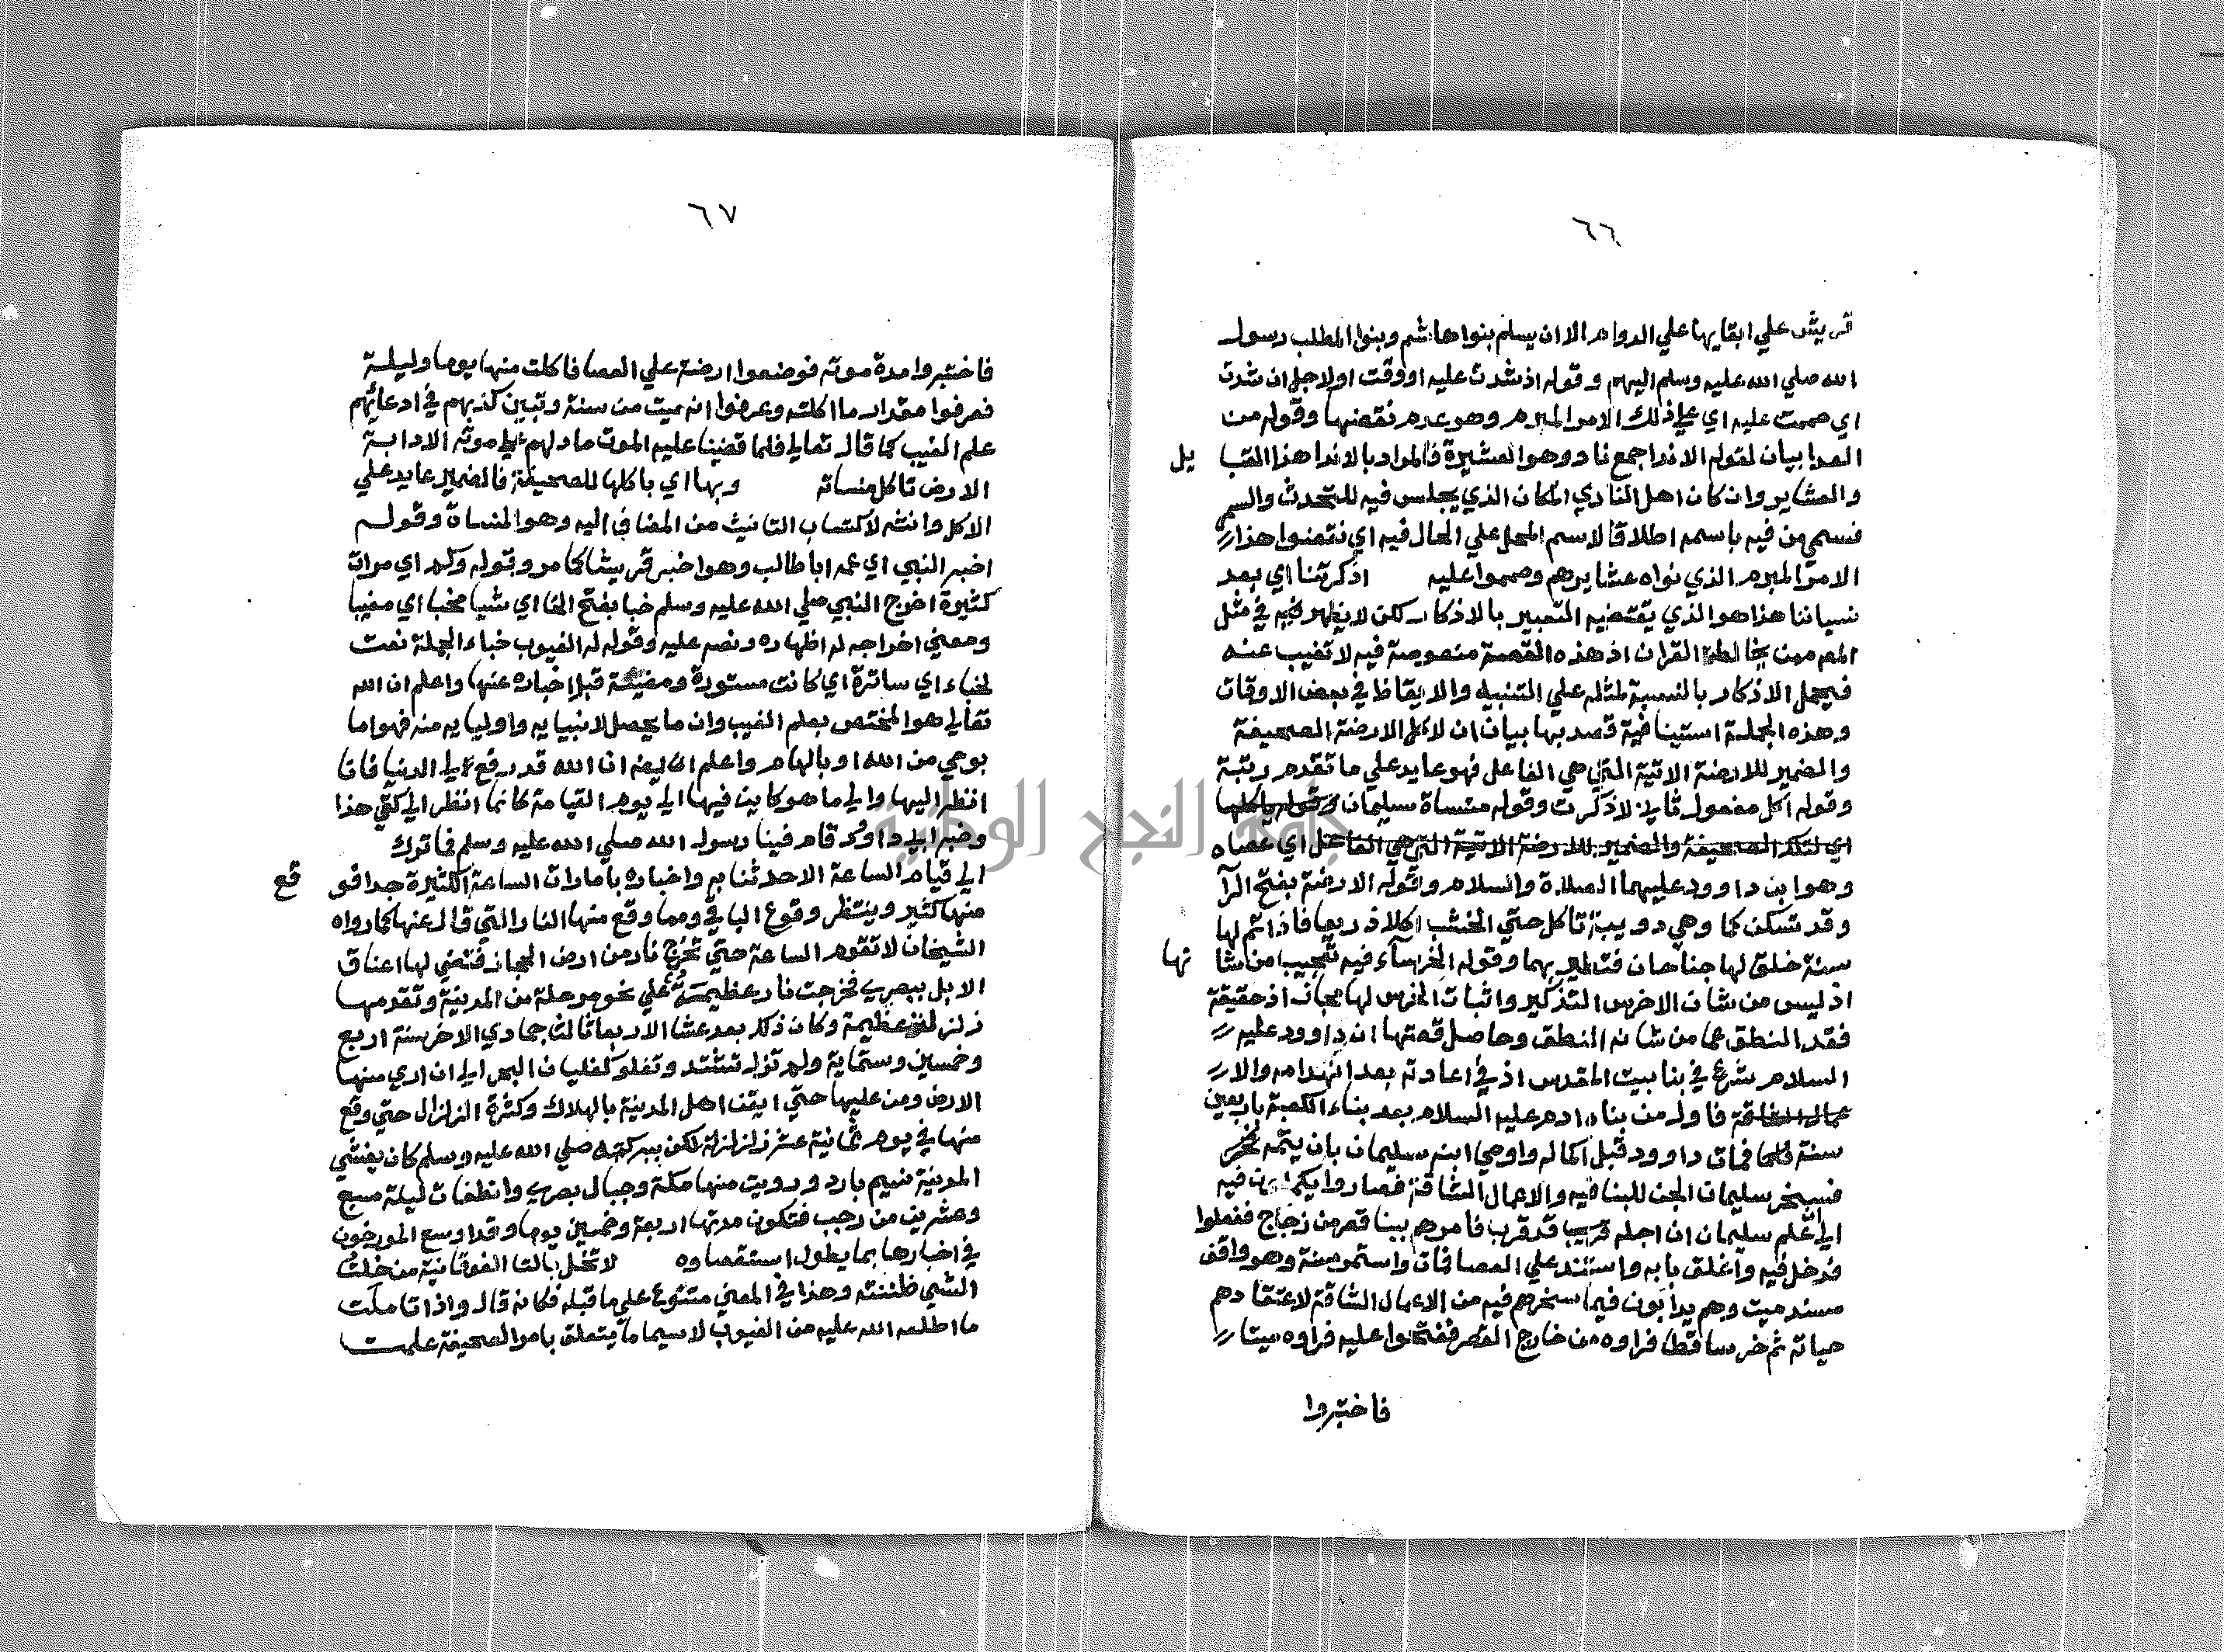 ٦٦
قريش علي ابقايها علي الدوام الا ان يسلم بنوا هاشم وبنوا المطلب رسول
الله صلي الله عليه وسلم اليهم وقوله اذ شدت عليه او وقت او لاجل ان شدت
اي صممت عليه اي علي ذلك الامر المبرم وهو عدم نقضها وقوله من
العدا بيان لقوله الاندا جمع ناد وهو العشيرة فالمراد بالاندا هذا القبا يل
والعشاير وان كان اهل النادي المكان الذي يجلس فيه للتحدث والسمر
فسمي من فيه باسمه اطلاقا لاسم المحل علي الحال فيه اي نقضوا هذا
الامر المبرم الذي نواه عشايرهم وصمموا عليه اذكرتنا اي بعد
نسياننا هذا هو الذي يقتضيه التعبير بالاذكار لكن لا يظهر فيه في مثل
المص ممن يخالطه القران اذ هذه القصة منصوصة فيه لا تغيب عنه
فيحمل الاذكار بالنسبة لمثله علي التنبيه والايقاظ في بعض الاوقات
وهذه الجملة استينافية قصد بها بيان ان لاكل الارضة الصحيفة
والضمير للارضة الاتية التي هي الفاعل فهو عايد علي ما تقدم رتبة
وقوله اكل مفعول ثاني لاذكرت وقوله منساة سليمان وقوله باكلها
اي لتلك الصحيفة والضمير للارضة الاتية التي هي الفاعل اي عصاه
وهو ابن داوود عليهما الصلاة والسلام وقوله الارضة بفتح الرآ
وقد تسكن كما وهي دويبة تاكل حتي الخشب اكلا ذريعا فاذا تم لها
سنة خلق لها جناحان فتطير بهما وقوله الخرسآء فيه تعجيب من شا نها
اذ ليس من شان الاخرس التذكير واثبات الخرس لها مجاز اذ حقيقة
فقد النطق عما من شانه النطق وحاصل قصتها ان داوود عليه
السلام شرع في بنا بيت المقدس اذ في اعادته بعد انهدامه والا
فاول من بناه ادم عليه السلام بعد بناء الكعبة باربعين
سنة فمات داوود قبل اكماله واوحي ابنه سليمان بان يتمه
فسخر سليمان الجن للبنا فيه والاعمال الشاقة فصاروا يكملون فيه
الي علم سليمان ان اجله قد قرب فامرهم ببنا قصر من زجاج ففعلوا
فدخل فيه واغلق بابه واستند علي العصا فمات واستمر سنة وهو واقف
مسند ميت وهم يدأبون فيما سخرهم فيه من الاعمال الشاقة لاعتقادهم
حياته ثم خر ساقطا فراوه من خارج القصر ففتحوا عليه فراوه ميتا
فاختبروا
٦٧
فاختبروا مدة موته فوضعوا ارضة علي العصا فاكلت منها يوما وليلة
فعرفوا مقدار ما اكلته وعرفوا انه ميت من سنة وتبين كذبهم في ادعائهم
علم الغيب كما قال تعالي فلما قضينا عليه الموت ما دلهم علي موته الا دابة
الارض تاكل منساته وبها اي باكلها للصحيفة فالضمير عايد علي
الاكل وانثه لاكتساب التانيث من المضاف اليه وهو المنساة وقوله
اخبر النبي اي عمه ابا طالب وهو اخبر قريشا كما مر وقوله وكم اي مرات
كثيرة اخرج النبي صلي الله عليه وسلم خبا بفتح الخا اي شيا مخبا اي مغيبا
ومعني اخراجه له اظهاره ونصه عليه وقوله له الغيوب خباء الجملة نعت
لخباء اي ساترة اي كانت مستورة ومغيبة قبل اخباره عنها واعلم ان الله
تعالي هو المختص بعلم الغيب وان ما يحصل لانبيايه واوليايه منه فهو اما
بوحي من الله او بالهام واعلم ايضا ان الله قد رفع لي الدنيا فانا
انظر اليها والي ما هو كاين فيها الي يوم القيامة كانما انظر الي كفي هذا
وخبر ابي داود قام فينا رسول الله صلي الله عليه وسلم فما ترك
الي قيام الساعة الا حدثنا به واخباره بامارات الساعة الكثيرة جدا فو قع
منها كثير وينتظر وقوع الباقي ومما وقع منها النار التي قال عنها كما رواه
الشيخان لا تقوم الساعة حتي تخرج نار من ارض الحجاز فتضي لها اعناق
الابل ببصري فخرجت نار عظيمة علي نحو مرحلة من المدينة وتقدمها
زلزلة عظيمة وكان ذلك بعد عشا الاربعا ثالث جمادي الاخر سنة اربع
وخمسين وستماية ولم تزل تشتد وتغلو كغليان البحر الي ان اري منها
الارض ومن عليها حتي ايقن اهل المدينة بالهلاك وكثرة الزلزال حتي وقع
منها في يوم ثمانية عشر زلزلة لكن ببركته صلي الله عليه وسلم كان يغشي
المدينة نسيم بارد ورويت منها مكة وجبال بصري وانطفات ليلة سبع
وعشرين من رجب فتكون مدتها اربعة وخمسين يوما وقد اوسع المورخون
في اخبارها بما يطول استقصاوه لا تخل بالتا الفوقانية من خلت
الشي ظننته وهذا في المعني متنوع علي ما قبله فكانه قال واذا تاملت
ما اطلعه الله عليه من الغيوب لا سيما ما يتعلق بامر الصحيفة علمت
جامعة النجاح الوطنية